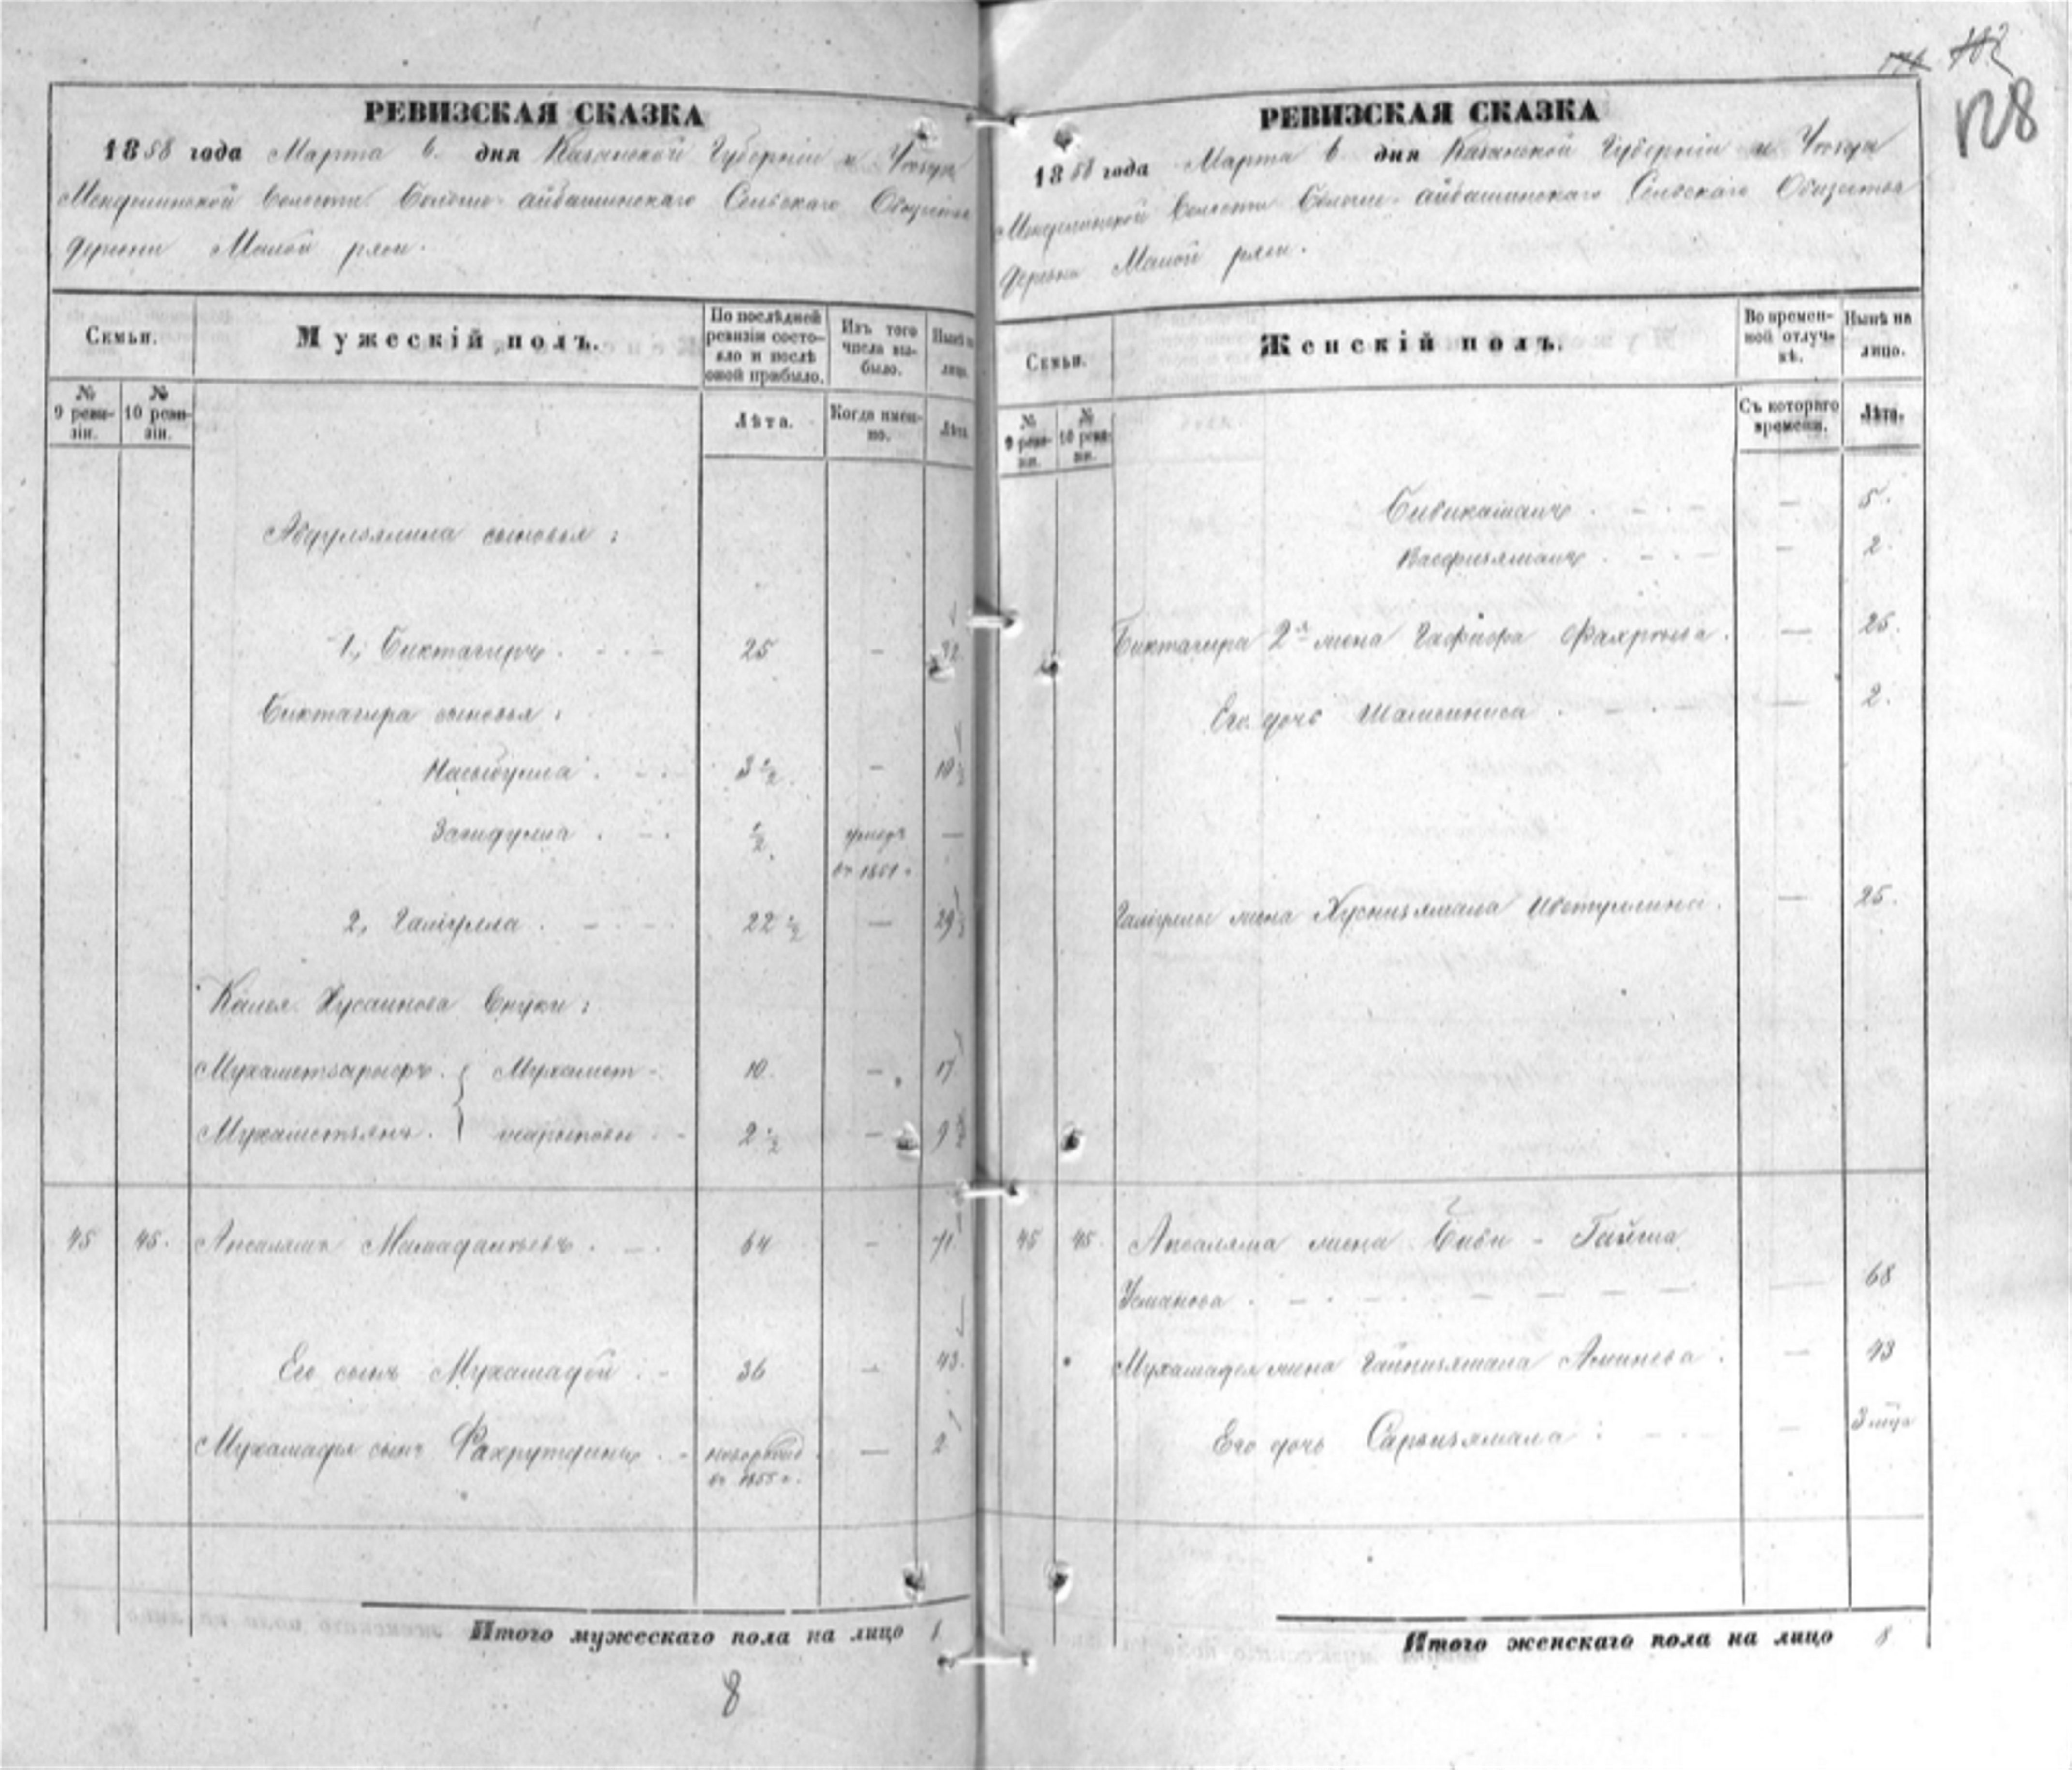 РЕВИЗСКАЯ СКАЗКА
1858 года Марта 6. дня Казанской Губернiи и Уѣзда
Менделинской Волости Больше-айбашинскаго Сельскаго Общества
деревни Малой ряси.
Семьи.
Мужескiй полъ.
По послѣдней ревизiи состояло и послѣ оной прибыло.
Изъ того числа выбыло.
Нынѣ на лицо.
№ 9 реви-зiи.
№ 10 реви-зiи.
Лѣта.
Когда имен-но.
Лѣта
Абдулзялила сыновья:
1, Биктагиръ. 25 — 32
Биктагира сыновья:
Насыбулла. 3 ½ — 10 ½
Загидулла. ½ умеръ —
въ 1851 г.
2, Галiулла. 22 ½ — 29 ½
Хусаинова Внуки:
Мухаметзарифъ. } Мухамет- 10. — 17
Мухаметзянъ. } шариповы 2 ½ — 9 ½
45 45. Апсалямъ Мамадалiевъ. 64 — 71.
Его сынъ Мухамадей 36 — 43.
Мухамадея сынъ Фахрутдинъ. новорожд — 2
въ 1855 г.
Итого мужескаго пола на лицо
8
102
128
РЕВИЗСКАЯ СКАЗКА
1858 года Марта 6 дня Казанской Губернiи и Уѣзда
Менделинской Волости Больше-айбашинскаго Сельскаго Общества
деревни Малой ряси.
Семьи.
Женскiй полъ.
Во времен-ной отлуч-кѣ.
Нынѣ на лицо.
№ 9 реви-зiи.
№ 10 реви-зiи.
Съ котораго времени.
Лѣта.
Бибикамалъ — 5.
Васфизямалъ — 2.
Биктагира 2я жена Гафифа Фахрѣева. — 25.
Его дочь Шамсиниса — 2.
Галiуллы жена Хуснизямала — 25.
45 45. Апсаляма жена Биби - Гайша
Усманова. — 68
Мухамадея жена Гайнизямала Аминева. — 43
Его дочь — 3 мѣс
Итого женскаго пола на лицо 8